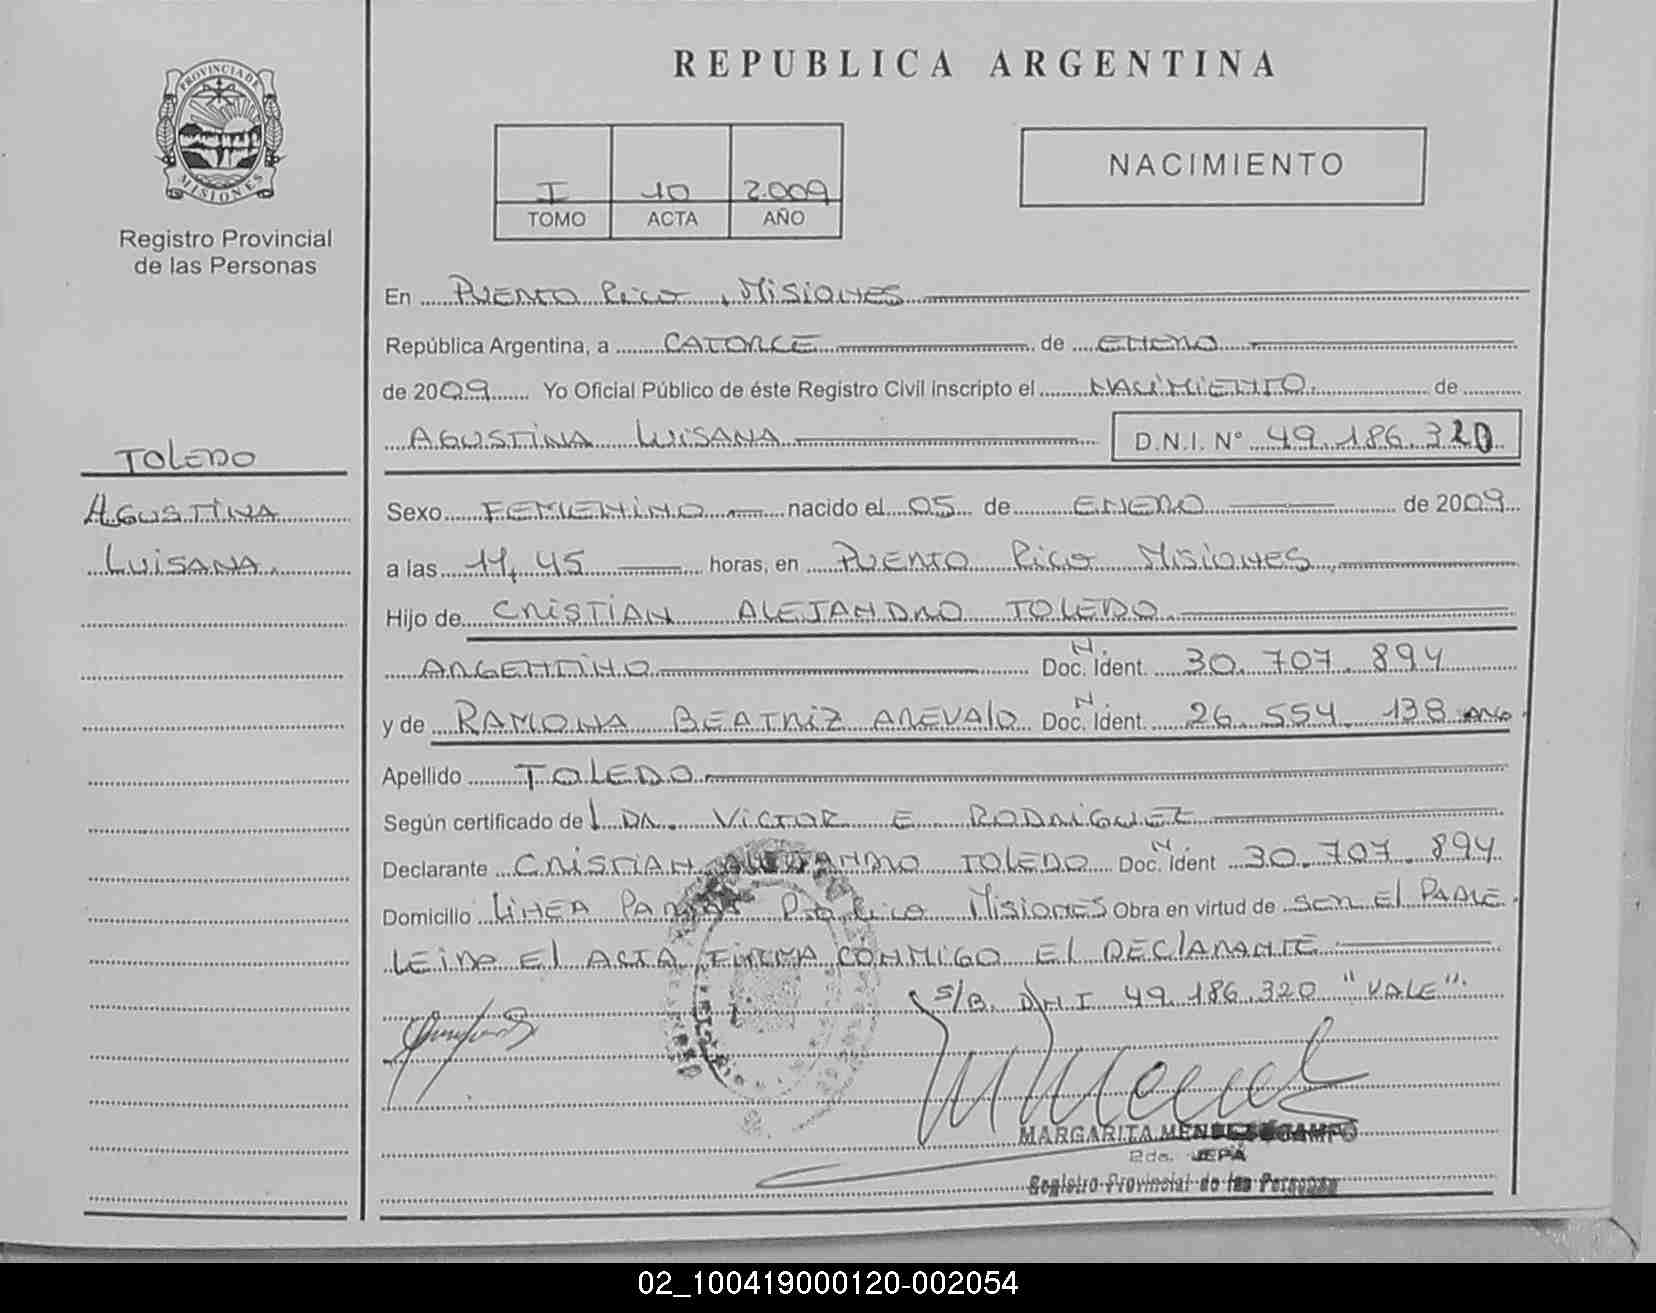 REPUBLICA ARGENTINA
PROVINCIA DE
MISIONES
Registro Provincial
de las Personas
I 10 2.009
TOMO ACTA AÑO
NACIMIENTO
En PUERTO RICO, MISIONES
República Argentina, a CATORCE de ENERO
de 2009 Yo Oficial Público de éste Registro Civil inscripto el NACIMIENTO de
AGUSTINA LUISANA D.N.I. N° 49.186.320
TOLEDO
AGUSTINA
LUISANA
Sexo FEMENINO nacido el 05 de ENERO de 2009
a las 11,45 horas, en PUERTO RICO MISIONES
Hijo de CRISTIAN ALEJANDRO TOLEDO
ARGENTINO Doc. N Ident. 30.707.894
y de RAMONA BEATRIZ AREVALO Doc. N Ident. 26.554.138 ARG.
Apellido TOLEDO
Según certificado del DR. VICTOR E RODRIGUEZ
Declarante CRISTIAN ALEJANDRO TOLEDO Doc. N Ident 30.707.894
Domicilio LINEA Pto Rico MISIONES Obra en virtud de SER EL PADRE.
LEIDA EL ACTA FIRMA CONMIGO EL DECLARANTE
S/B. DNI 49.186.320 "VALE".
MARGARITA
2da. JEFA
Registro Provincial de las Personas
02_100419000120-002054